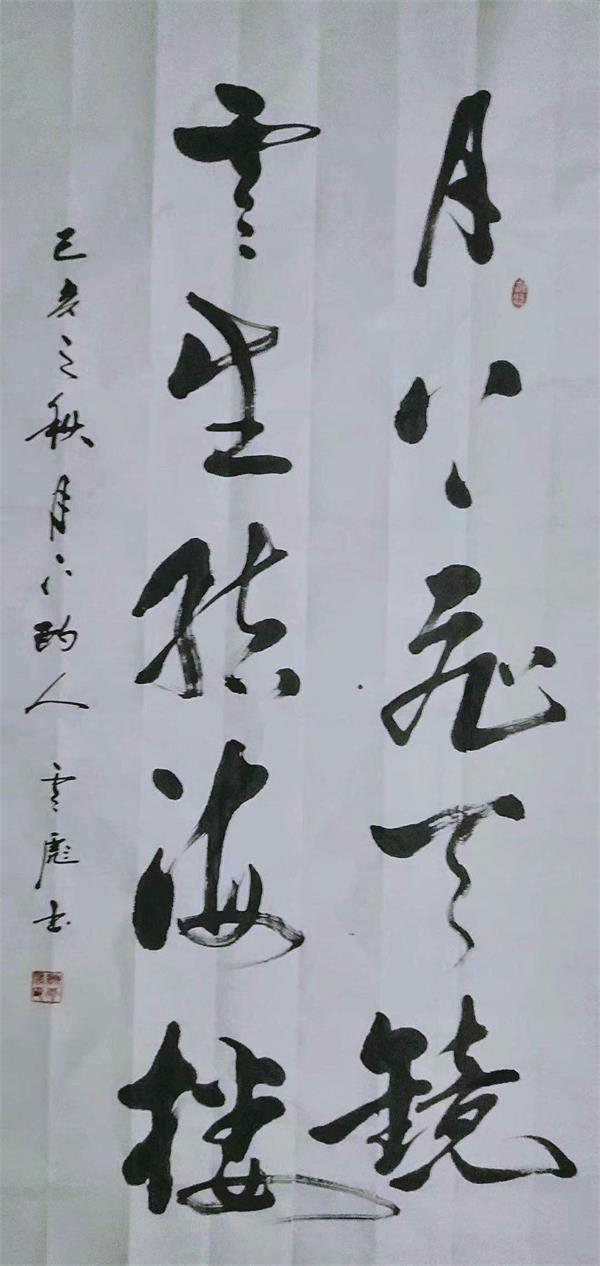 月下飞天镜
云生结海楼
己亥之秋月下酌人云彪书